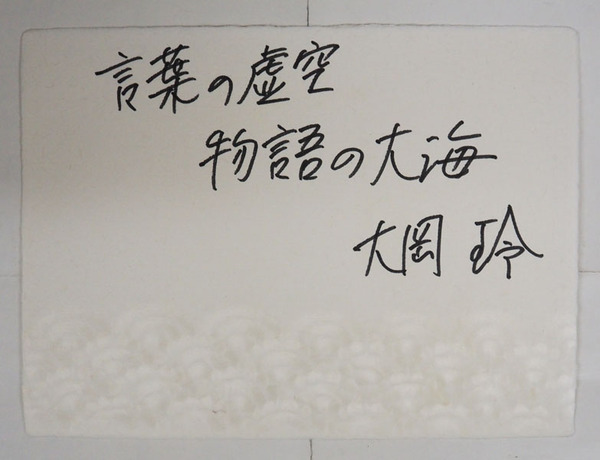 言葉の虚空
物語の大海
大岡 玲